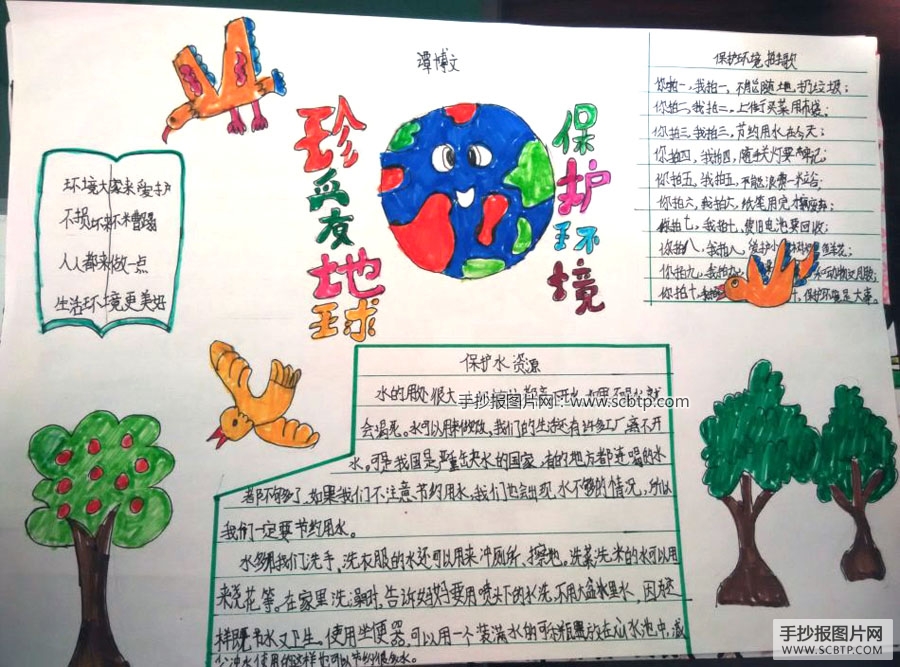 谭博文
珍爱地球
保护环境
环境大家来爱护
不损坏
人人都来做一点
生活环境更美好
保护环境拍手歌
你拍一,我拍一,不能随地扔垃圾;
你拍二,我拍二,上街买菜用布袋;
你拍三,我拍三,节约用水在今天;
你拍四,我拍四,随手关灯要牢记;
你拍五,我拍五,不能浪费一粒谷;
你拍六,我拍六,纸笔用完
你拍七,我拍七,废旧电池要回收;
你拍八,我拍八,爱护小
你拍九,我拍九,和动物交朋友;
你拍十,保护环境是大事。
保护水资源
水的用处很大
手抄报图片网:www.scbtp.com
会渴死。水可以用来做饭,我们的生活还有许多工厂离不开
水。可是我国是严重缺水的国家,有的地方都连喝的水
都不够了,如果我们不注意节约用水,我们也会出现水不够的情况,所以
我们一定要节约用水。
水多,我们洗手、洗衣服的水还可以用来冲厕所、擦地。洗菜、洗米的水可以用
来浇花等。在家里洗澡时,告诉妈妈要用喷头下的水洗,不用大盆水里水,因为这
样既节水又卫生。使用坐便器,可以用一个装满水的可乐瓶放在水池中,减
少冲水使用的
手抄报图片网
WWW.SCBTP.COM